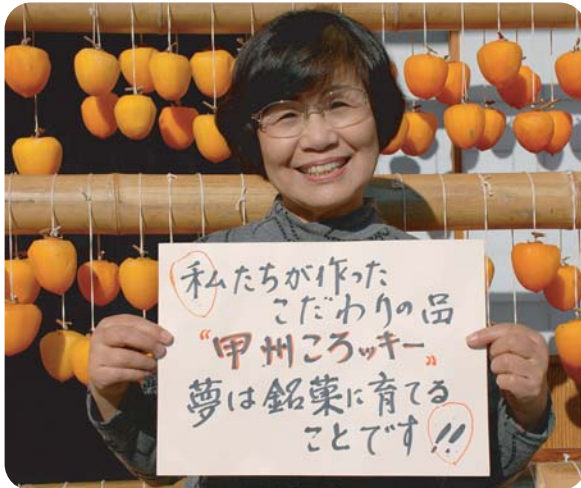 私たちが作った
こだわりの品
"甲州ころッキー"
夢は銘菓に育てる
ことです!!